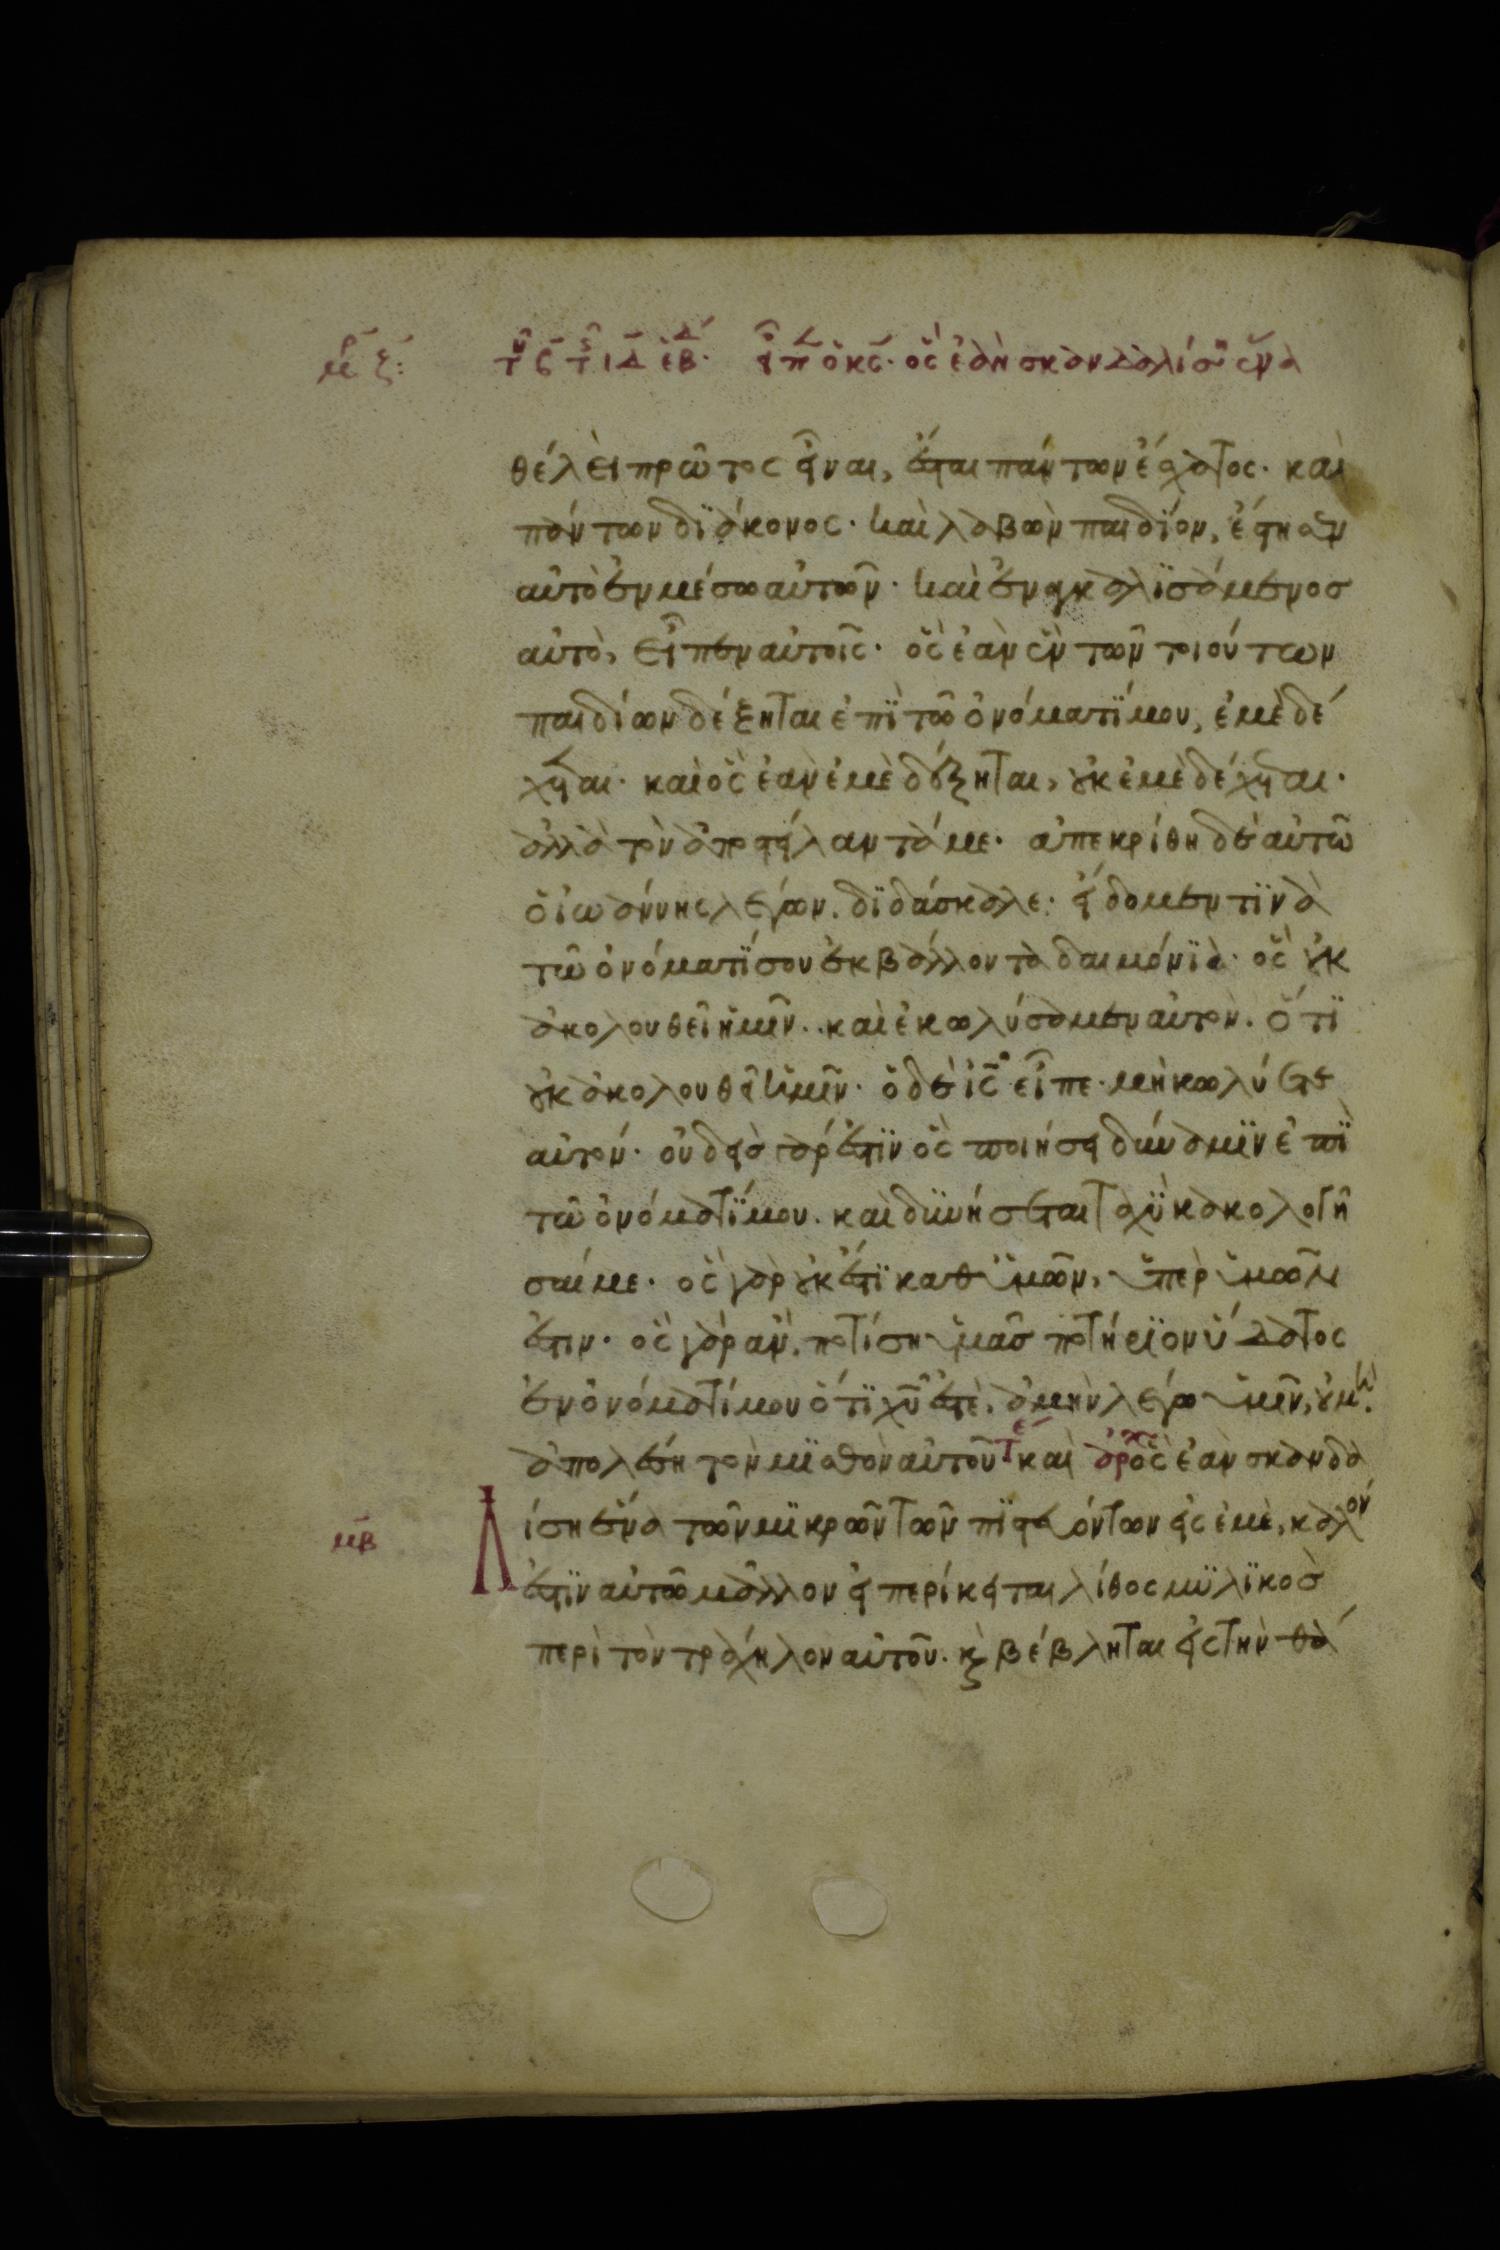 θέλει πρῶτος εἶναι, ἔσται πάντων ἔσχατος. καὶ
πάντων διάκονος. καὶ λαβὼν παιδίον, ἔστησεν
αὐτὸ ἐν μέσω αὐτῶν. καὶ ἐναγκαλισάμενος
αὐτὸ, εἶπεν αὐτοῖς. ὃς ἐὰν ἓν τῶν τοιούτων
παιδίων δέξηται ἐπὶ τῶ ὀνόματί μου, ἐμὲ δέ
χεται. καὶ ὃς ἐὰν ἐμὲ δέξηται, οὐκ ἐμὲ δέχεται.
ἀλλὰ τὸν ἀποστείλαντά με. ἀπεκρίθη δὲ αὐτῶ
ὁ ἰωάννης λέγων. διδάσκαλε. εἴδομέν τινα
τῶ ὀνόματί σου ἐκβάλλοντα δαιμόνια. ὃς οὐκ
ἀκολουθεῖ ἡμῖν. καὶ ἐκωλύσαμεν αὐτὸν. ὅτι
οὐκ ἀκολουθεῖ ἡμῖν. ὁ δὲ ἰς εἶπε. μὴ κωλύετε
αὐτόν. οὐδεὶς γάρ ἐστιν ὃς ποιήσει δύναμιν ἐπὶ
τῶ ὀνόματί μου. καὶ δυνήσεται ταχὺ κακολογῆ
σαί με. ὃς γὰρ οὐκ ἔστι καθ ὑμῶν, ὑπὲρ ὑμῶν
ἐστιν. ὃς γὰρ ἂν ποτίση ὑμᾶς ποτήριον ὕδατος
ἐν ὀνόματί μου ὅτι χυ ἐστὲ. ἀμὴν λέγω ὑμῖν, οὐ μὴ
ἀπολέση τὸν μισθὸν αὐτοῦ καὶ ὃς ἐὰν σκανδα
λίση ἕνα τῶν μικρῶν τῶν πιστευόντων εἰς ἐμὲ, καλόν
ἐστιν αὐτῶ μᾶλλον εἰ περίκειται λίθος μυλικὸς
περὶ τὸν τράχηλον αὐτοῦ. καὶ βέβληται εἰς τὴν θά
μβ